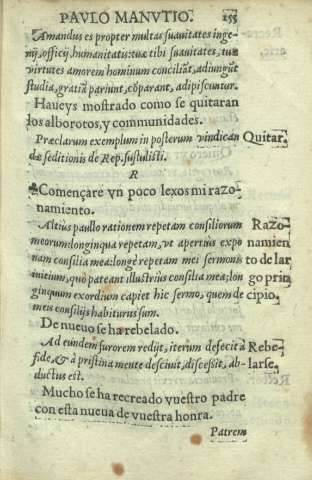 PAVLO MANVTIO. 255
Amandus es propter multas suauitates inge-
nij, officij, humanitatis: tuæ tibi suauitates, tuæ
virtutes amorem hominum conciliāt, adiungūt
studia, gratiā pariunt, cōparant, adipiscuntur.
Haueys mostrado como se quitaran
los alborotos, y communidades.
Præclarum exemplum in posterum vindican
dæ seditionis de Rep. sustulisti.
Quitar.
R
Començare vn poco lexos mi razo-
namiento.
Altius paullo rationem repetam consiliorum
meorum: longinqua repetam, vt apertius expo
nam consilia mea: longè repetam mei sermonis
initium, quò pateant illustrius consilia mea: lon
ginquum exordium capiet hic sermo, quem de
meis consilijs habiturus sum.
Razo-
namien
to de lar
go prin
cipio.
De nueuo se ha rebelado.
Ad eundem furorem redijt, iterum defecit à
fide, & à pristina mente desciuit, discessit, ab-
ductus est.
Rebe-
larse.
Mucho se ha recreado vuestro padre
con esta nueua de vuestra honra.
Patrem